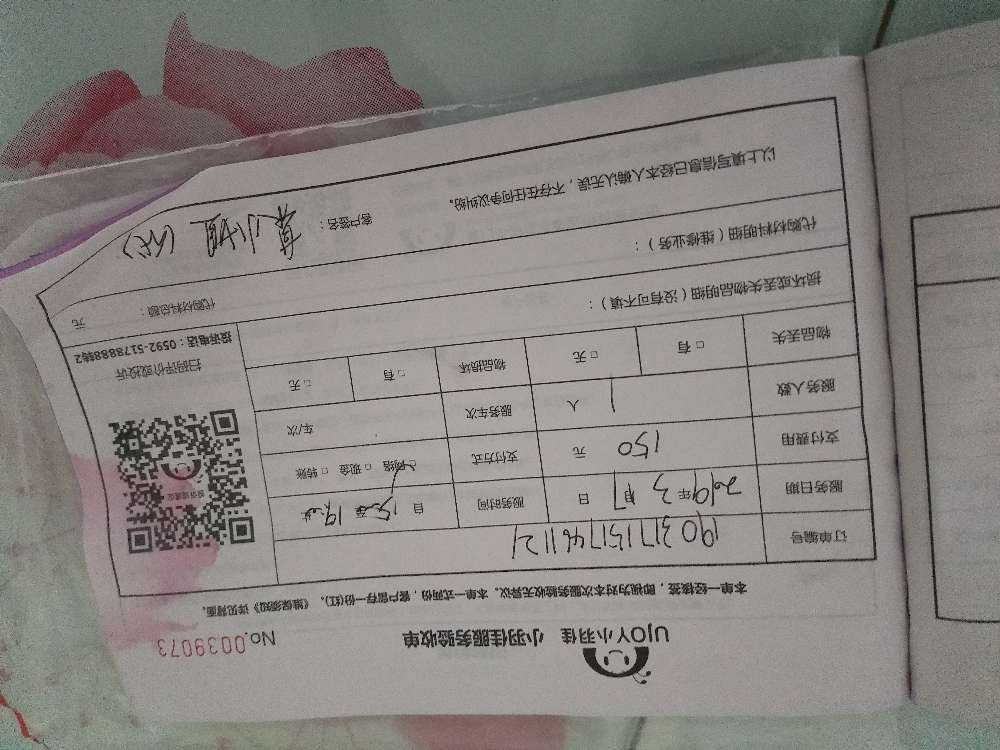 UJOY小羽佳 小羽佳服务验收单 No.0039073
本单一经核签，即视为对本次服务验收无异议。本单一式两份，客户留存一份(红)。《维保须知》详见背面。
订单编号 190317151746112
服务日期 2019年3月17日 服务时间 自15:00至19:00
支付费用 150元 支付方式 □网络 □现金 □转账
服务人数 1人 服务车次 车/次
物品丢失 □有 □无 物品损坏 □有 □无
扫码评价或投诉
投诉电话：0592-5178888转2
损坏或丢失物品明细（没有可不填）：
代购材料明细（维修业务）： 代购材料总额： 元
以上填写信息已经本人确认无误，不存在任何争议纠纷。
客户签名：